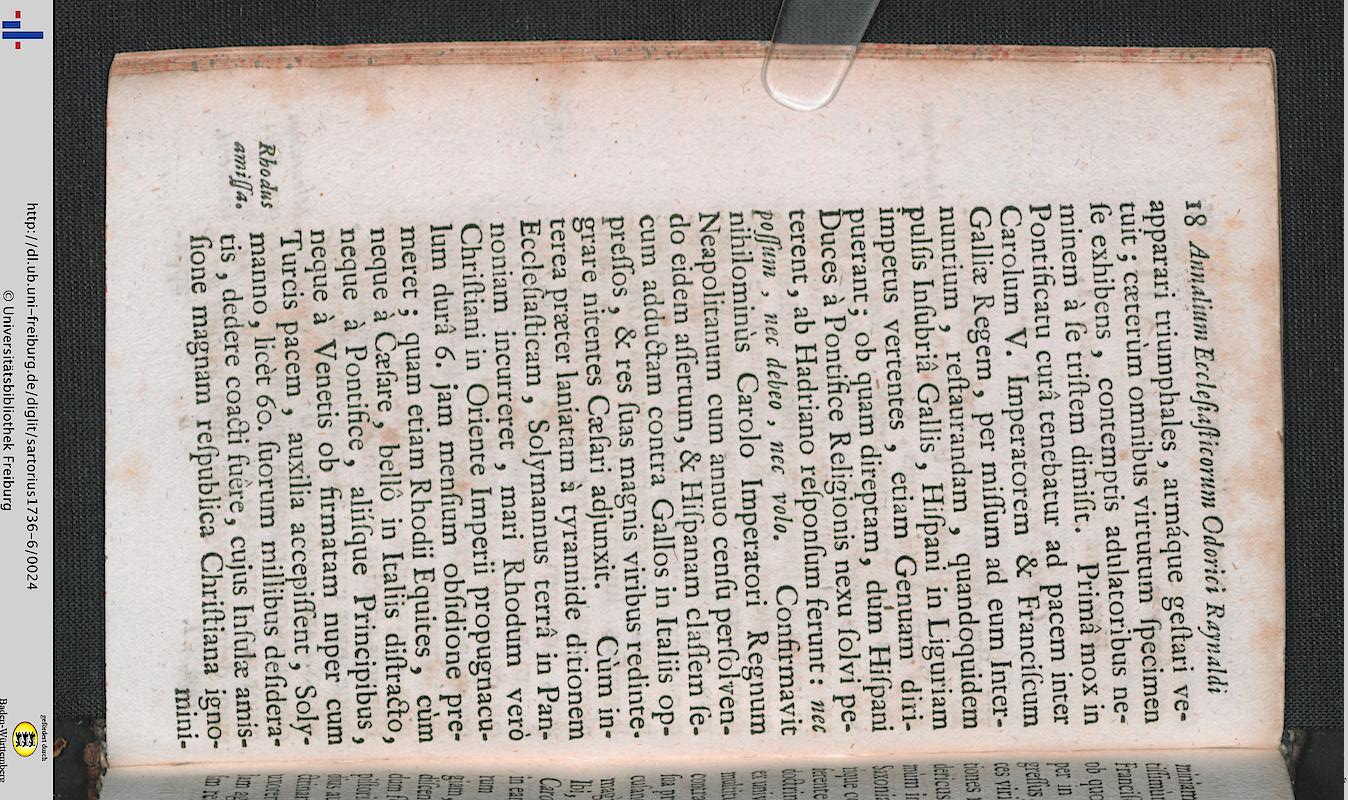 18 Annalium Eccleſiaſticorum Odorici Raynaldi
apparari triumphales, armáque geſtari ve-
tuit; cæterùm omnibus virtutum ſpecimen
ſe exhibens, contemptis adulatoribus ne-
minem à ſe triſtem dimiſit. Primâ mox in
Pontificatu curâ tenebatur ad pacem inter
Carolum V. Imperatorem & Franciſcum
Galliæ Regem, per miſſum ad eum Inter-
nuntium, reſtaurandam, quandoquidem
pulſis Inſubriâ Gallis, Hiſpani in Liguriam
impetus vertentes, etiam Genuam diri-
puerant; ob quam direptam, dum Hiſpani
Duces à Pontifice Religionis nexu ſolvi pe-
terent, ab Hadriano reſponſum ferunt: nec
poſſum, nec debeo, nec volo. Confirmavit
nihilominùs Carolo Imperatori Regnum
Neapolitanum cum annuo cenſu perſolven-
do eidem aſſertum, & Hiſpanam claſſem ſe-
cum adductam contra Gallos in Italiis op-
preſſos, & res ſuas magnis viribus redinte-
grare nitentes Cæſari adjunxit. Cùm in-
terea præter laniatam à tyrannide ditionem
Eccleſiaſticam, Solymannus terrâ in Pan-
noniam incurreret, mari Rhodum verò
Chriſtiani in Oriente Imperii propugnacu-
lum durâ 6. jam menſium obſidione pre-
meret; quam etiam Rhodii Equites, cùm
neque à Cæſare, bellô in Italiis diſtracto,
neque à Pontifice, aliiſque Principibus,
neque à Venetis ob firmatam nuper cum
Turcis pacem, auxilia accepiſſent, Soly-
manno, licèt 60. ſuorum millibus deſidera-
tis, dedere coacti fuêre, cujus Inſulæ amiſ-
ſione magnam reſpublica Chriſtiana igno-
mini-
Rhodus
amiſſa.
http://dl.ub.uni-freiburg.de/digit/sartorius1736-6/0024
© Universitätsbibliothek Freiburg
gefördert durch
Baden-Württemberg